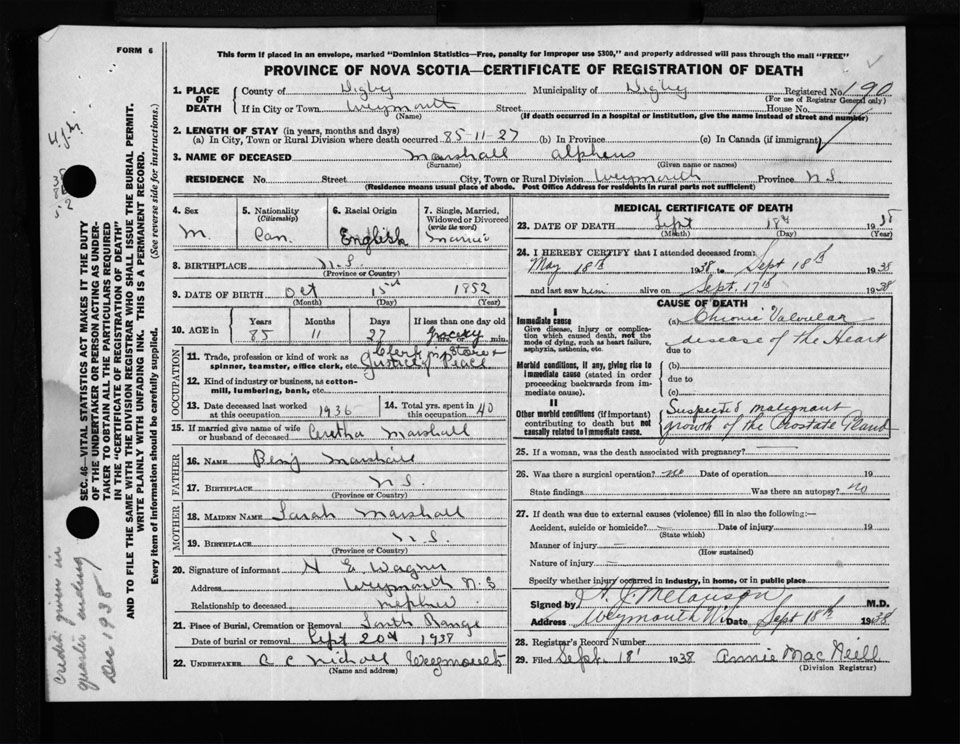 FORM 6
This form if placed in an envelope, marked "Dominion Statistics—Free, penalty for improper use $300," and properly addressed will pass through the mail "FREE"
PROVINCE OF NOVA SCOTIA—CERTIFICATE OF REGISTRATION OF DEATH
1. PLACE OF DEATH
County of Digby Municipality of Digby Registered No. 190
(For use of Registrar General only)
If in City or Town Weymouth Street House No.
(Name) (If death occurred in a hospital or institution, give the name instead of street and number)
2. LENGTH OF STAY (in years, months and days)
(a) In City, Town or Rural Division where death occurred 85-11-27 (b) In Province (c) In Canada (if immigrant)
3. NAME OF DECEASED Marshall Alpheus
(Surname) (Given name or names)
RESIDENCE No. Street City, Town or Rural Division Weymouth Province N.S
(Residence means usual place of abode. Post Office Address for residents in rural parts not sufficient)
4. Sex
M.
5. Nationality
(Citizenship)
Can.
6. Racial Origin
English
7. Single, Married, Widowed or Divorced
(write the word)
8. BIRTHPLACE N.S.
(Province or Country)
9. DATE OF BIRTH Oct 15 1852
(Month) (Day) (Year)
10. AGE in Years Months Days If less than one day old
85 11 27 hrs. or min.
OCCUPATION
11. Trade, profession or kind of work as spinner, teamster, office clerk, etc. Clerk in Grocery Store & Justice of Peace
12. Kind of industry or business, as cotton-mill, lumbering, bank, etc.
13. Date deceased last worked at this occupation 1936
14. Total yrs. spent in this occupation 40
15. If married give name of wife or husband of deceased Marshall
FATHER
16. NAME Benj Marshall
17. BIRTHPLACE N.S.
(Province or Country)
MOTHER
18. MAIDEN NAME Sarah Marshall
19. BIRTHPLACE N.S.
(Province or Country)
20. Signature of informant H E Wagner
Address Weymouth N.S
Relationship to deceased nephew
21. Place of Burial, Cremation or Removal South Range
Date of burial or removal Sept 20th 1938
22. UNDERTAKER C C Nichall Weymouth
(Name and address)
MEDICAL CERTIFICATE OF DEATH
23. DATE OF DEATH Sept 18th 1938
(Month) (Day) (Year)
24. I HEREBY CERTIFY that I attended deceased from:
May 18th 1938 to Sept 18th 1938
and last saw him alive on Sept. 17th 1938
CAUSE OF DEATH
I
Immediate cause
Give disease, injury or complication which caused death, not the mode of dying, such as heart failure, asphyxia, asthenia, etc.
(a) Chronic Valvular
disease of the Heart
due to
Morbid conditions, if any, giving rise to immediate cause (stated in order proceeding backwards from immediate cause).
(b)
due to
(c)
II
Other morbid conditions (if important) contributing to death but not causally related to immediate cause.
Suspected malignant
growth of the Prostate Gland
25. If a woman, was the death associated with pregnancy?
26. Was there a surgical operation? no Date of operation 19
State findings Was there an autopsy? no
27. If death was due to external causes (violence) fill in also the following:—
Accident, suicide or homicide? Date of injury 19
(State which)
Manner of injury
(How sustained)
Nature of injury
Specify whether injury occurred in industry, in home, or in public place
Signed by H. J. Melanson M.D.
Address Weymouth Date Sept 18th 1938
28. Registrar's Record Number
29. Filed Sept. 18 1938 Annie MacNeill
(Division Registrar)
SEC. 46—VITAL STATISTICS ACT MAKES IT THE DUTY
OF THE UNDERTAKER OR PERSON ACTING AS UNDERTAKER
TO OBTAIN ALL THE PARTICULARS REQUIRED
IN THE "CERTIFICATE OF REGISTRATION OF DEATH"
AND TO FILE THE SAME WITH THE DIVISION REGISTRAR WHO SHALL ISSUE THE BURIAL PERMIT.
WRITE PLAINLY WITH UNFADING INK. THIS IS A PERMANENT RECORD.
Every item of information should be carefully supplied. (See reverse side for instructions.)
credit given in
quarter ending
Dec 1938